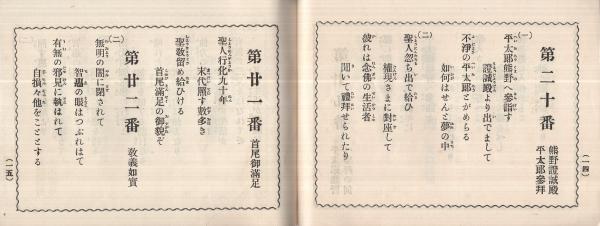 (一四)
第二十番 熊野證誠殿
平太郎參拜
(一)
平太郎熊野へ參詣す
證誠殿より出でまして
不淨の平太郎とがめらる
如何はせんと夢の中
(二)
聖人忽ち出で給ひ
權現さまに對座して
彼れは念佛の生活者
聞いて禮拜せられたり
第廿一番 首尾御滿足
聖人行化九十年
末代照す數多き
聖敎留め給ひける
首尾滿足の御貌ぞ
第廿二番 敎義如實
(二)
無明の闇に閉されて
智慧の眼はつぶれはて
有無の邪見に執はれて
自損々他をこととする
(一五)